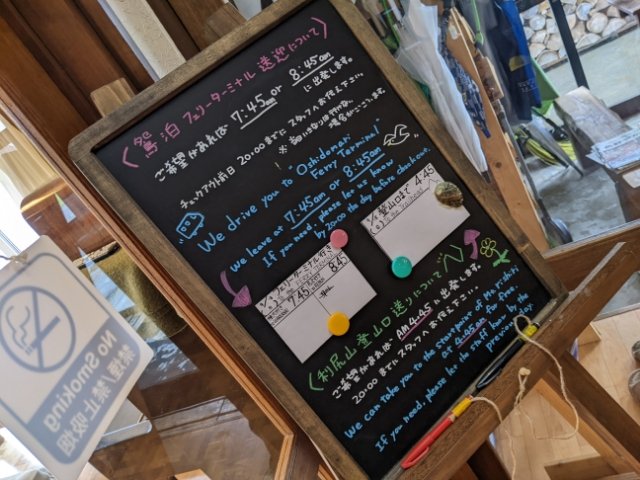 〈鴛泊フェリーターミナル 送迎について〉
ご希望があれば 7:45am or 8:45am
に出発します。
チェックアウト前日 20:00までに スタッフへお伝え下さい。
We drive you to "Oshidomari
Ferry Terminal"
We leave at 7:45am or 8:45am
If you need, please let us know
by 20:00 the day before checkout.
フェリーターミナル行き
7.45
8.45
登山口まで 4:45
〈利尻山登山口送りについて〉
ご希望があれば AM 4:45に出発します。
20:00までにスタッフへお伝え下さい。
We can take you to the startpoint of Mt. rishiri
at 4:45am for free.
If you need, please let the staff know by the
previous day
No Smoking
禁煙/禁止吸烟